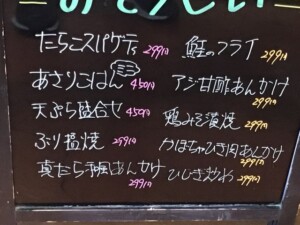 おそうざい
たらこスパゲティ 299円
あさりごはん ミニ 450円
天ぷら盛合せ 450円
ぶり塩焼 299円
真たら和風あんかけ 299円
鮭のフライ 299円
アジ甘酢あんかけ 299円
鶏みそ漬焼 299円
かぼちゃひき肉あんかけ 299円
ひじき炒め 299円